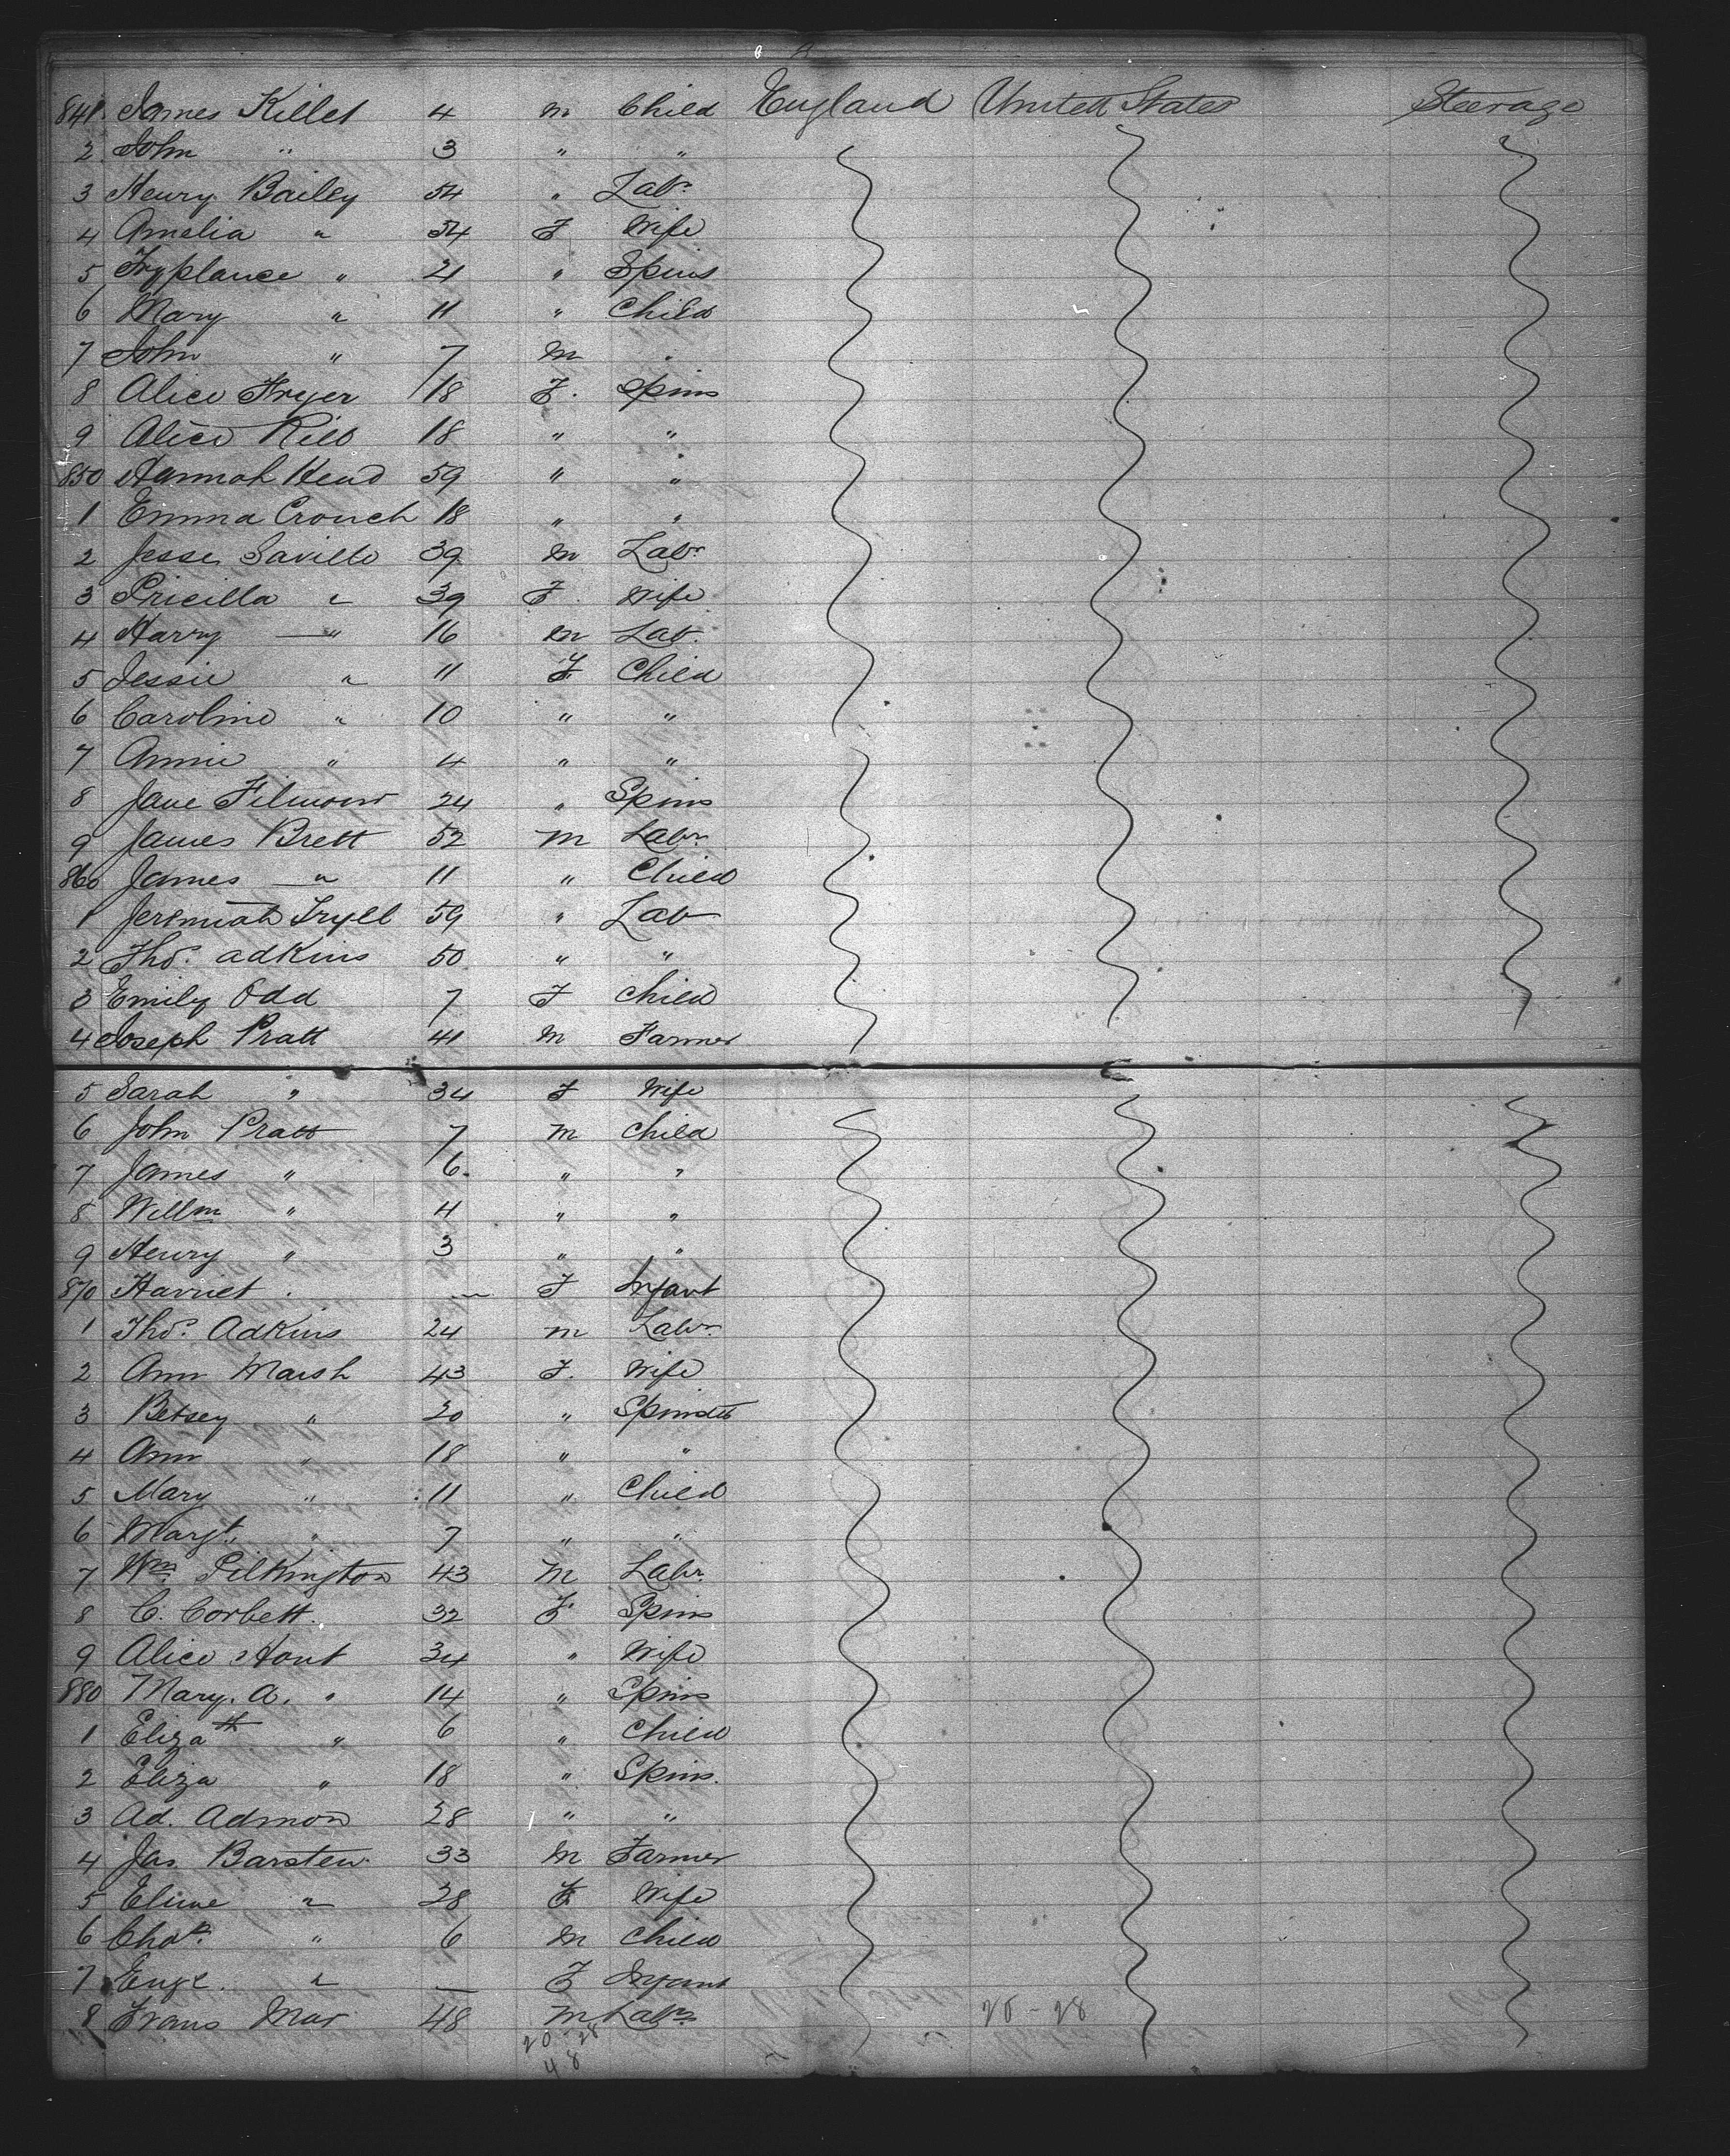 841 James Killet 4 m Child England United States Steerage
2 John " 3 " "
3 Henry Bailey 54 " Labr
4 Amelia " 54 F Wife
5 " 21 " Spins
6 Mary " 11 " Child
7 John " 7 M "
8 Alice Fryer 18 F. Spins
9 Alice 18 " "
850 Hannah Head 59 " "
1 Emma Crouch 18 " "
2 Jesse Saville 39 m Labr
3 Pricilla " 39 F. Wife
4 Harry " 16 m Lab.
5 Jessie " 11 F Child
6 Caroline " 10 " "
7 Annie " 4 " "
8 Jane 24 " Spins
9 James Brett 52 M Labr
860 James " 11 " Child
1 Jeremiah 59 " Lab
2 Thos. Adkins 50 " "
3 Emily Odd 7 F Child
4 Joseph Pratt 41 M Farmer
5 Sarah " 34 F Wife
6 John Pratt 7 M Child
7 James " 6 " "
8 Willm " 4 " "
9 Henry " 3 " "
870 Harriet . — F Infant
1 Thos. Adkins 24 m Labr.
2 Ann Marsh 43 F. Wife
3 Betsey " 20 "
4 Ann " 18 " "
5 Mary " 11 " Child
6 Margt. " 7 " "
7 Wm Pilkington 43 M Labr.
8 C. Corbett. 32 F Spins
9 Alice 34 " Wife
880 Mary. A. " 14 " Spins
1 Elizath " 6 " Child
2 Eliza " 18 " Spins.
3 Ad. Admon 28 " "
4 Jas. Barsten 33 M Farmer
5 " 28 F Wife
6 Chas. " 6 M Child
7 " — F Infant
8 Frans Mar 48 M Labr 20-28
20-28
48